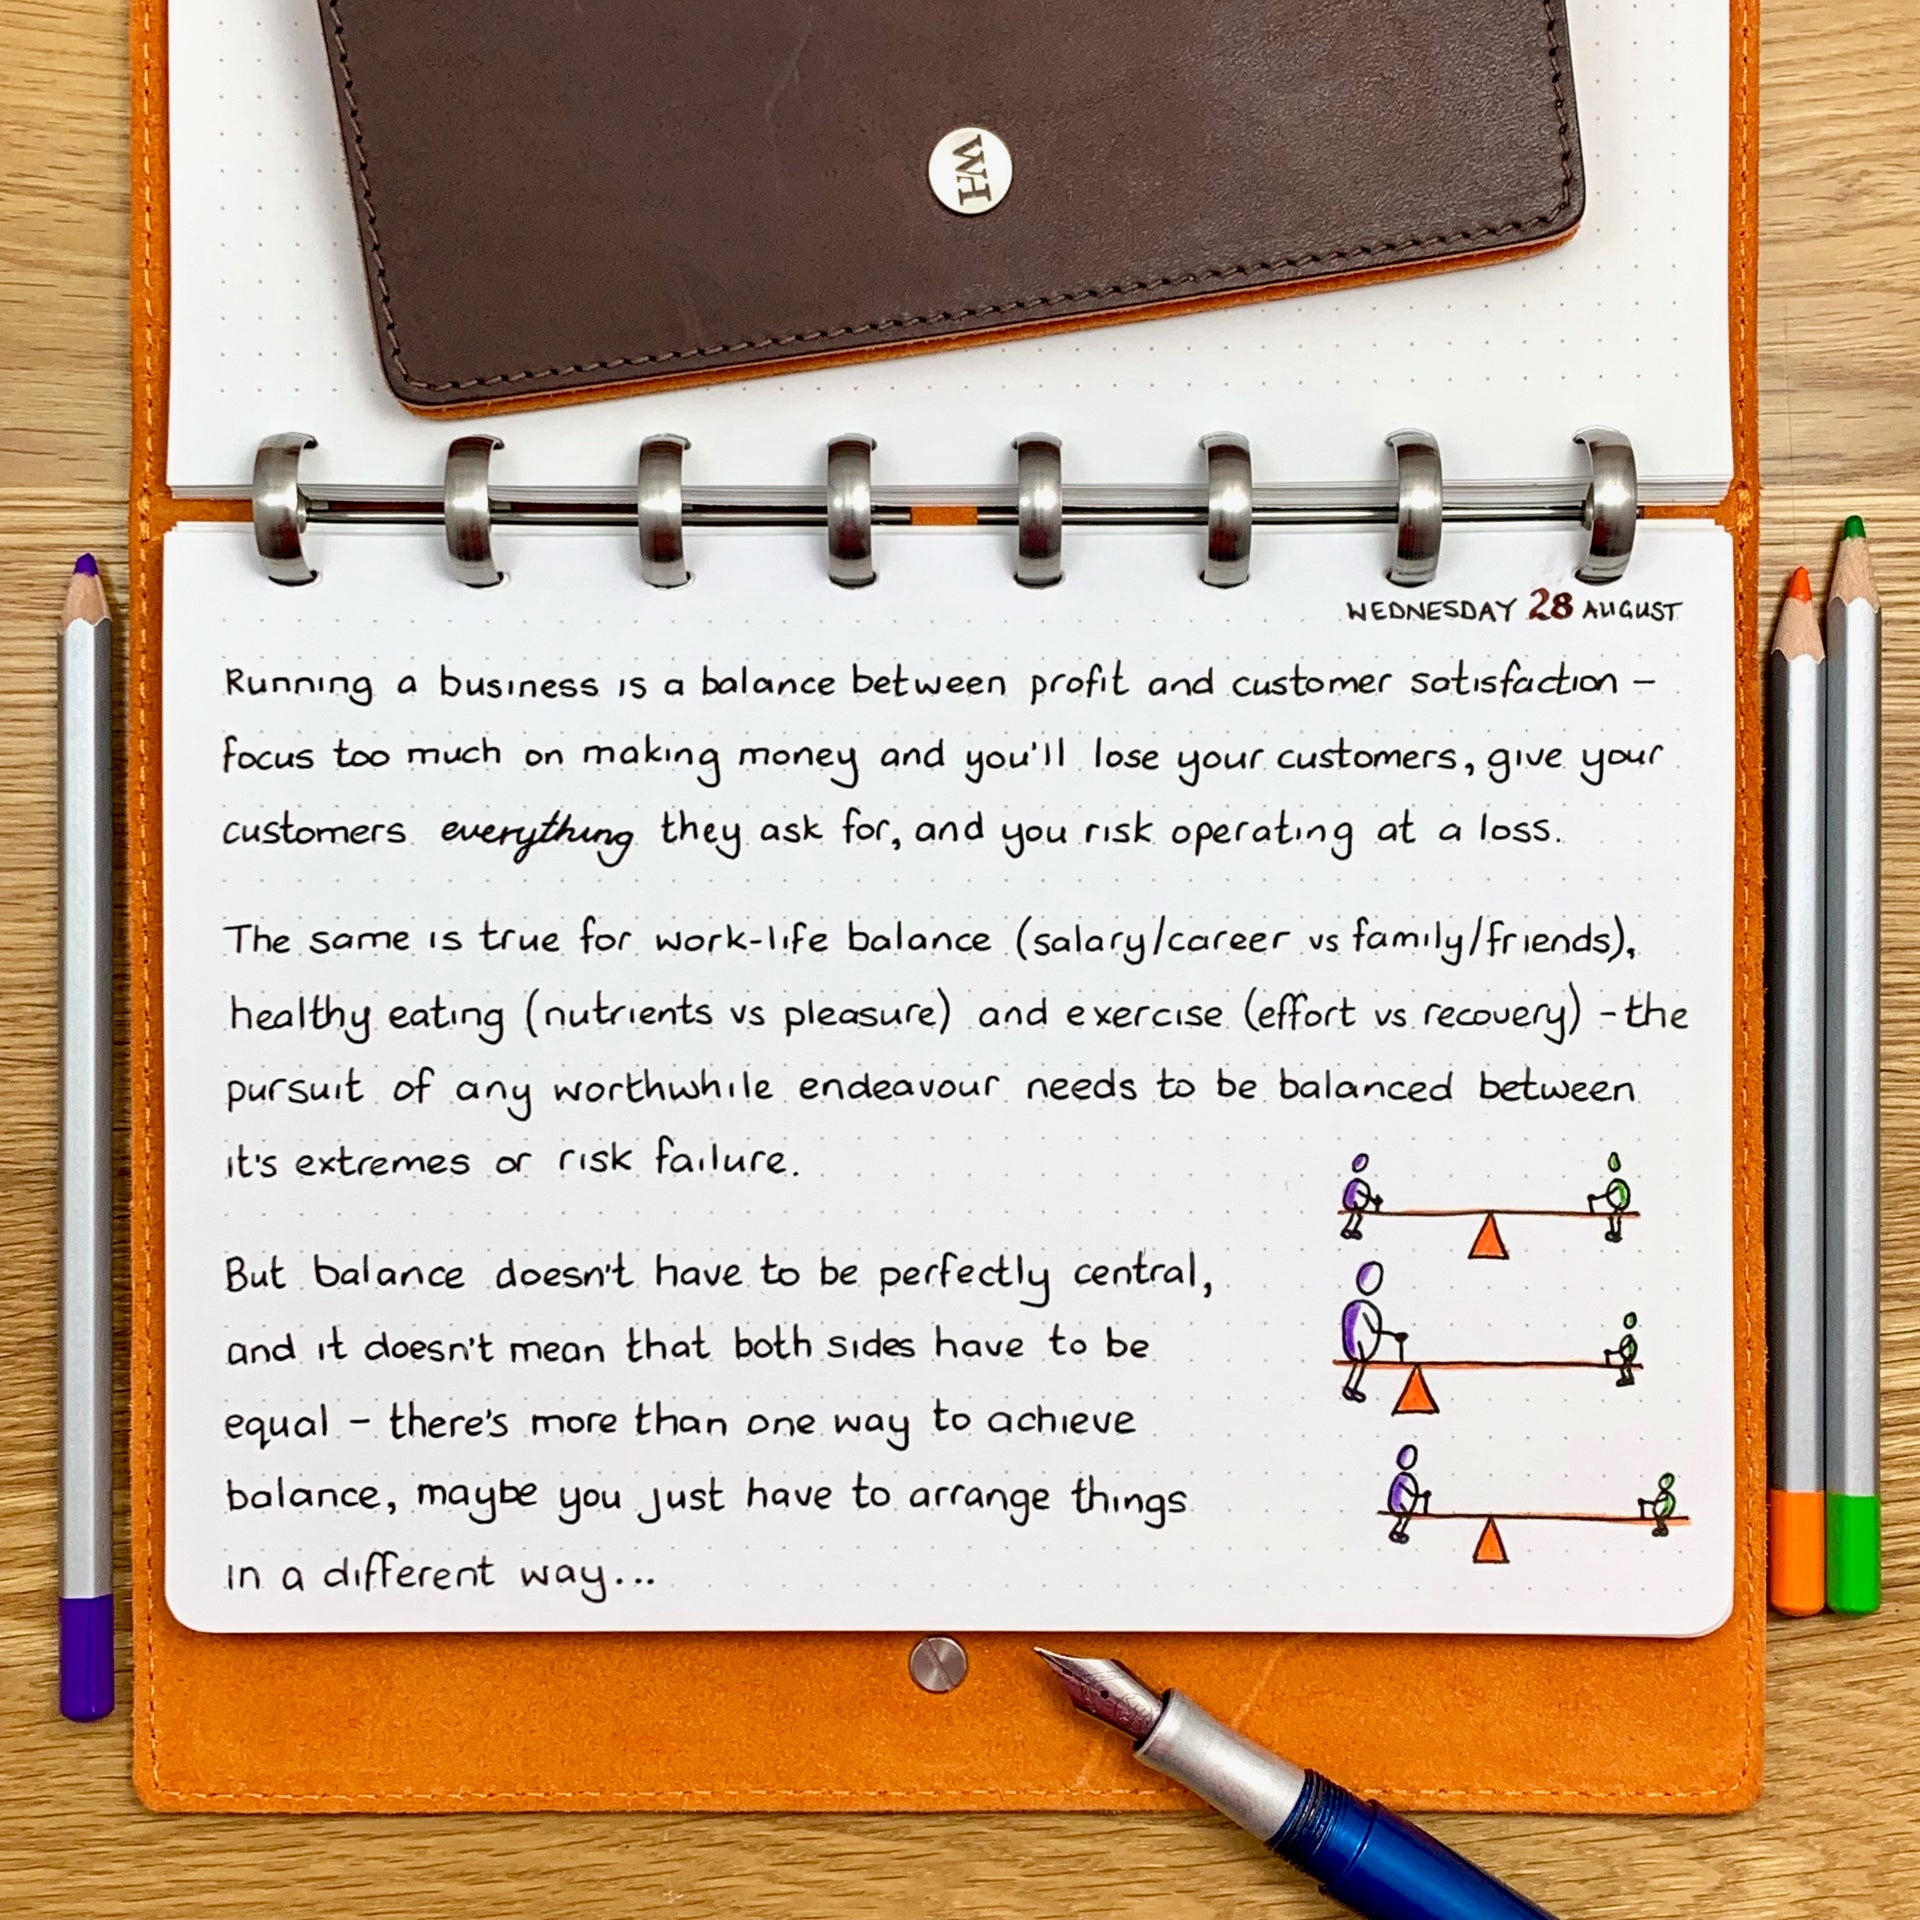 WH
WEDNESDAY 28 AUGUST
Running a business is a balance between profit and customer satisfaction –
focus too much on making money and you'll lose your customers, give your
customers everything they ask for, and you risk operating at a loss.
The same is true for work-life balance (salary/career vs family/friends),
healthy eating (nutrients vs pleasure) and exercise (effort vs recovery) – the
pursuit of any worthwhile endeavour needs to be balanced between
it's extremes or risk failure.
But balance doesn't have to be perfectly central,
and it doesn't mean that both sides have to be
equal – there's more than one way to achieve
balance, maybe you just have to arrange things
in a different way...